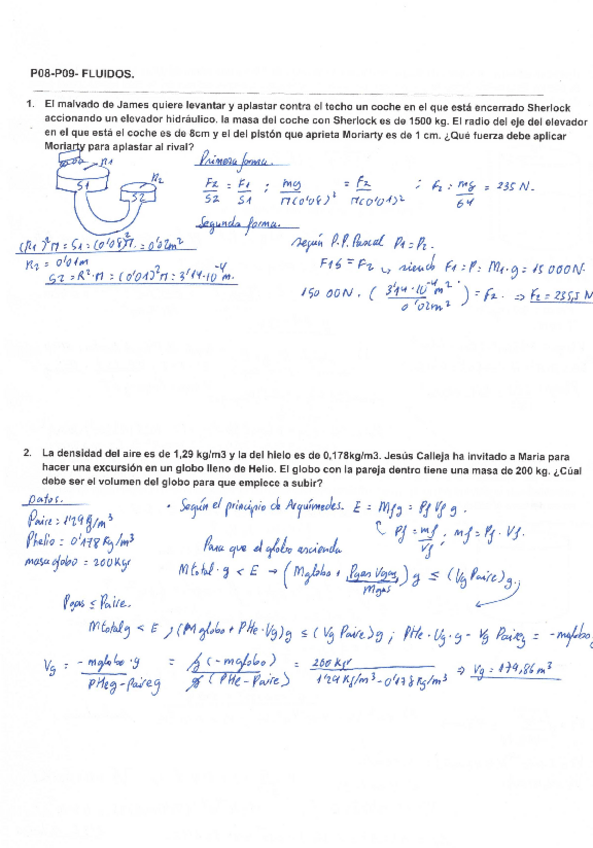 P08-P09- FLUIDOS.
1. El malvado de James quiere levantar y aplastar contra el techo un coche en el que está encerrado Sherlock
accionando un elevador hidráulico. la masa del coche con Sherlock es de 1500 kg. El radio del eje del elevador
en el que está el coche es de 8cm y el del pistón que aprieta Moriarty es de 1 cm. ¿Qué fuerza debe aplicar
Moriarty para aplastar al rival?
Primera forma.
R1
S1
R2
S2
F2/S2 = F1/S1 ; mg/π(0'08)² = F2/π(0'01)² ; F2 = mg/64 = 235 N.
Segunda forma.
(R1)²π = S1 = (0'08)²π = 0'02m²
R2 = 0'01m
S2 = R²·π = (0'01)²π = 3'14·10⁻⁴m.
según P.P.Pascal P1 = P2.
siendo F1 = P = M1·g = 15 000N.
150 00N · (3'14·10⁻⁴m² / 0'02m²) = F2. ⇒ F2 = 235,5 N
2. La densidad del aire es de 1,29 kg/m3 y la del hielo es de 0,178kg/m3. Jesús Calleja ha invitado a Maria para
hacer una excursión en un globo lleno de Helio. El globo con la pareja dentro tiene una masa de 200 kg. ¿Cúal
debe ser el volumen del globo para que empiece a subir?
Datos.
· Según el principio de Arquímedes. E = Mfg = Pf Vf g.
Paire = 1'29 Kg/m³
Phelio = 0'178 Kg/m³
masa globo = 200 Kgr
Pf = mf/Vf ; mf = Pf · Vf.
Para que el globo ascienda
Mtotal · g < E → (Mglobo + Pgas Vgas / Mgas) g ≤ (Vg Paire) g.
Pgas ≤ Paire.
Mtotal g < E ; (Mglobo + PHe · Vg) g ≤ (Vg Paire) g ; PHe · Vg · g - Vg Paire g = - mglobo
Vg = - mglobo · g / PHe g - Paire g = g (- mglobo) / g (PHe - Paire) = 200 Kgr / 1'29 Kg/m³ - 0'178 Kg/m³ ⇒ Vg = 179,86 m³